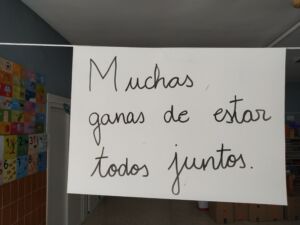 Muchas
ganas de estar
todos juntos.